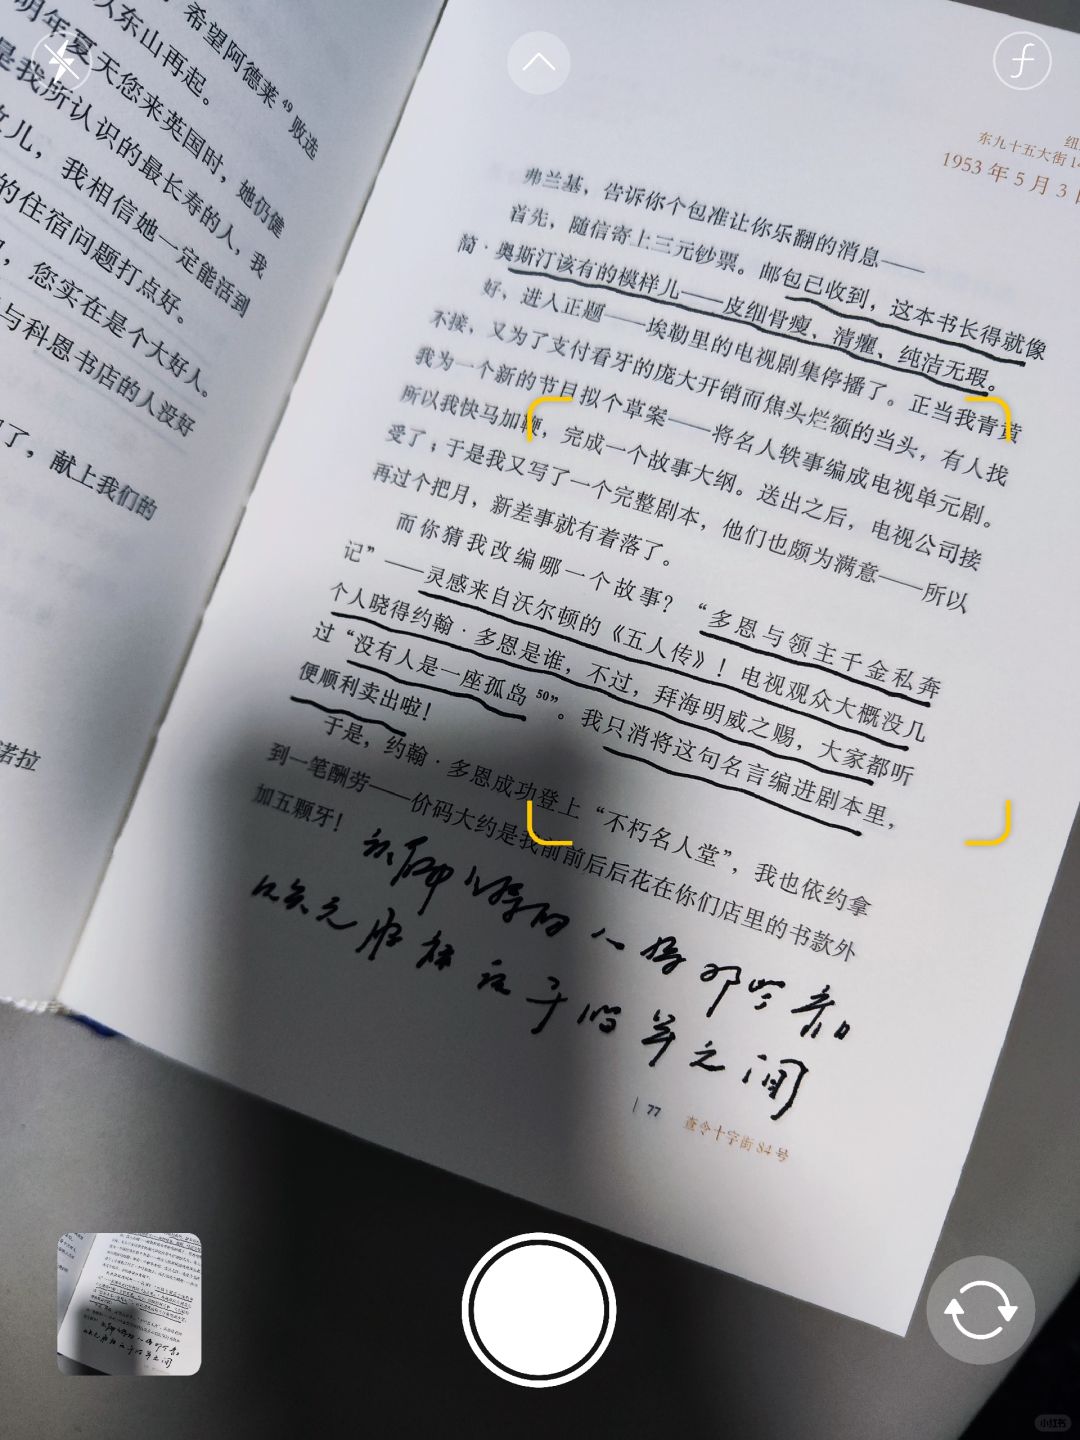 希望阿德莱⁴⁹败选
以东山再起。
明年夏天您来英国时，她仍健
是我所认识的最长寿的人，我
儿，我相信她一定能活到
的住宿问题打点好。
，您实在是个大好人。
与科恩书店的人没好
了，献上我们的
诺拉
纽
东九十五大街14
1953年5月3日
弗兰基，告诉你个包准让你乐翻的消息——
首先，随信寄上三元钞票。邮包已收到，这本书长得就像
简·奥斯汀该有的模样儿——皮细骨瘦、清癯、纯洁无瑕。
好，进入正题——埃勒里的电视剧集停播了。正当我青黄
不接，又为了支付看牙的庞大开销而焦头烂额的当头，有人找
我为一个新的节目拟个草案——将名人轶事编成电视单元剧。
所以我快马加鞭，完成一个故事大纲。送出之后，电视公司接
受了；于是我又写了一个完整剧本，他们也颇为满意——所以
再过个把月，新差事就有着落了。
而你猜我改编哪一个故事？“多恩与领主千金私奔
记”——灵感来自沃尔顿的《五人传》！电视观众大概没几
个人晓得约翰·多恩是谁，不过，拜海明威之赐，大家都听
过“没有人是一座孤岛⁵⁰”。我只消将这句名言编进剧本里，
便顺利卖出啦！
于是，约翰·多恩成功登上“不朽名人堂”，我也依约拿
到一笔酬劳——价码大约是我前前后后花在你们店里的书款外
加五颗牙！
之间
77 查令十字街84号
小红书